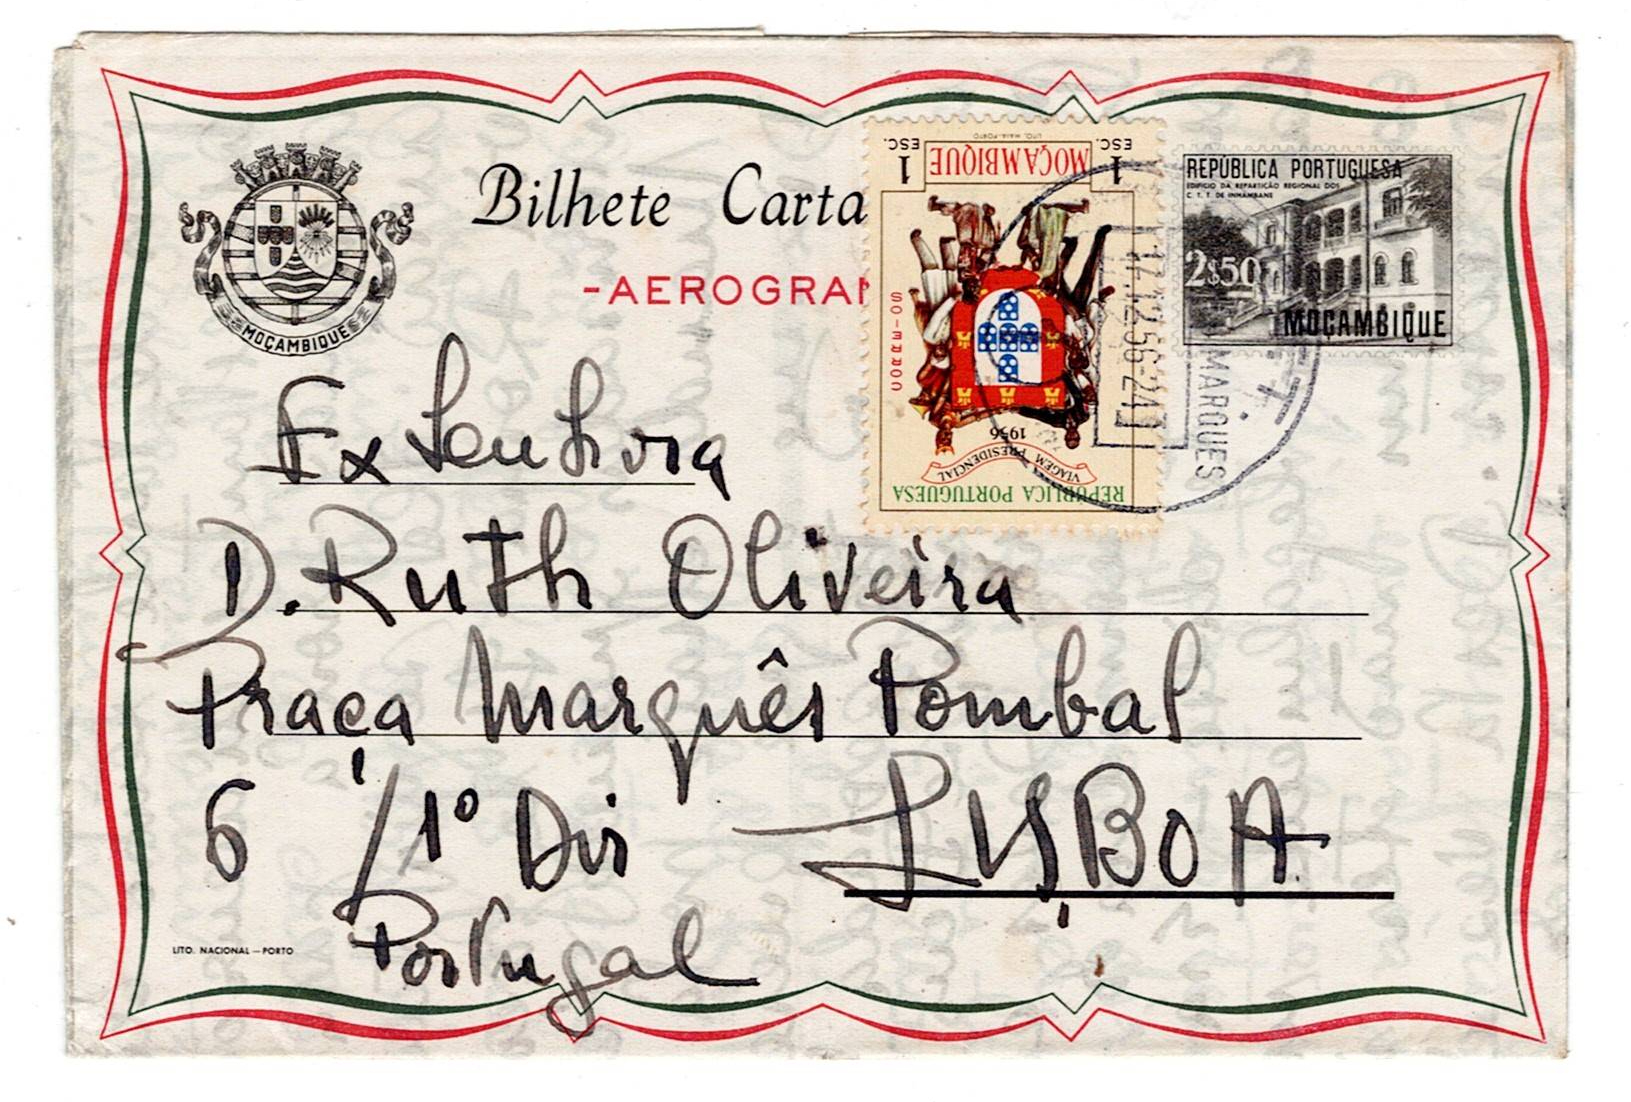 Bilhete Carta
-AEROGRAM
MOÇAMBIQUE
REPÚBLICA PORTUGUESA
EDIFÍCIO DA REPARTIÇÃO REGIONAL DOS
C. T. T. DE INHAMBANE
2$50
MOÇAMBIQUE
1 ESC.
MOÇAMBIQUE
1 ESC.
LITO. MAIA-PORTO
1956
VIAGEM PRESIDENCIAL
REPÚBLICA PORTUGUESA
MARQUES
Ex Senhora
D. Ruth Oliveira
Praça Marquês Pombal
6 / 1º Dir LISBOA
Portugal
LITO. NACIONAL — PORTO